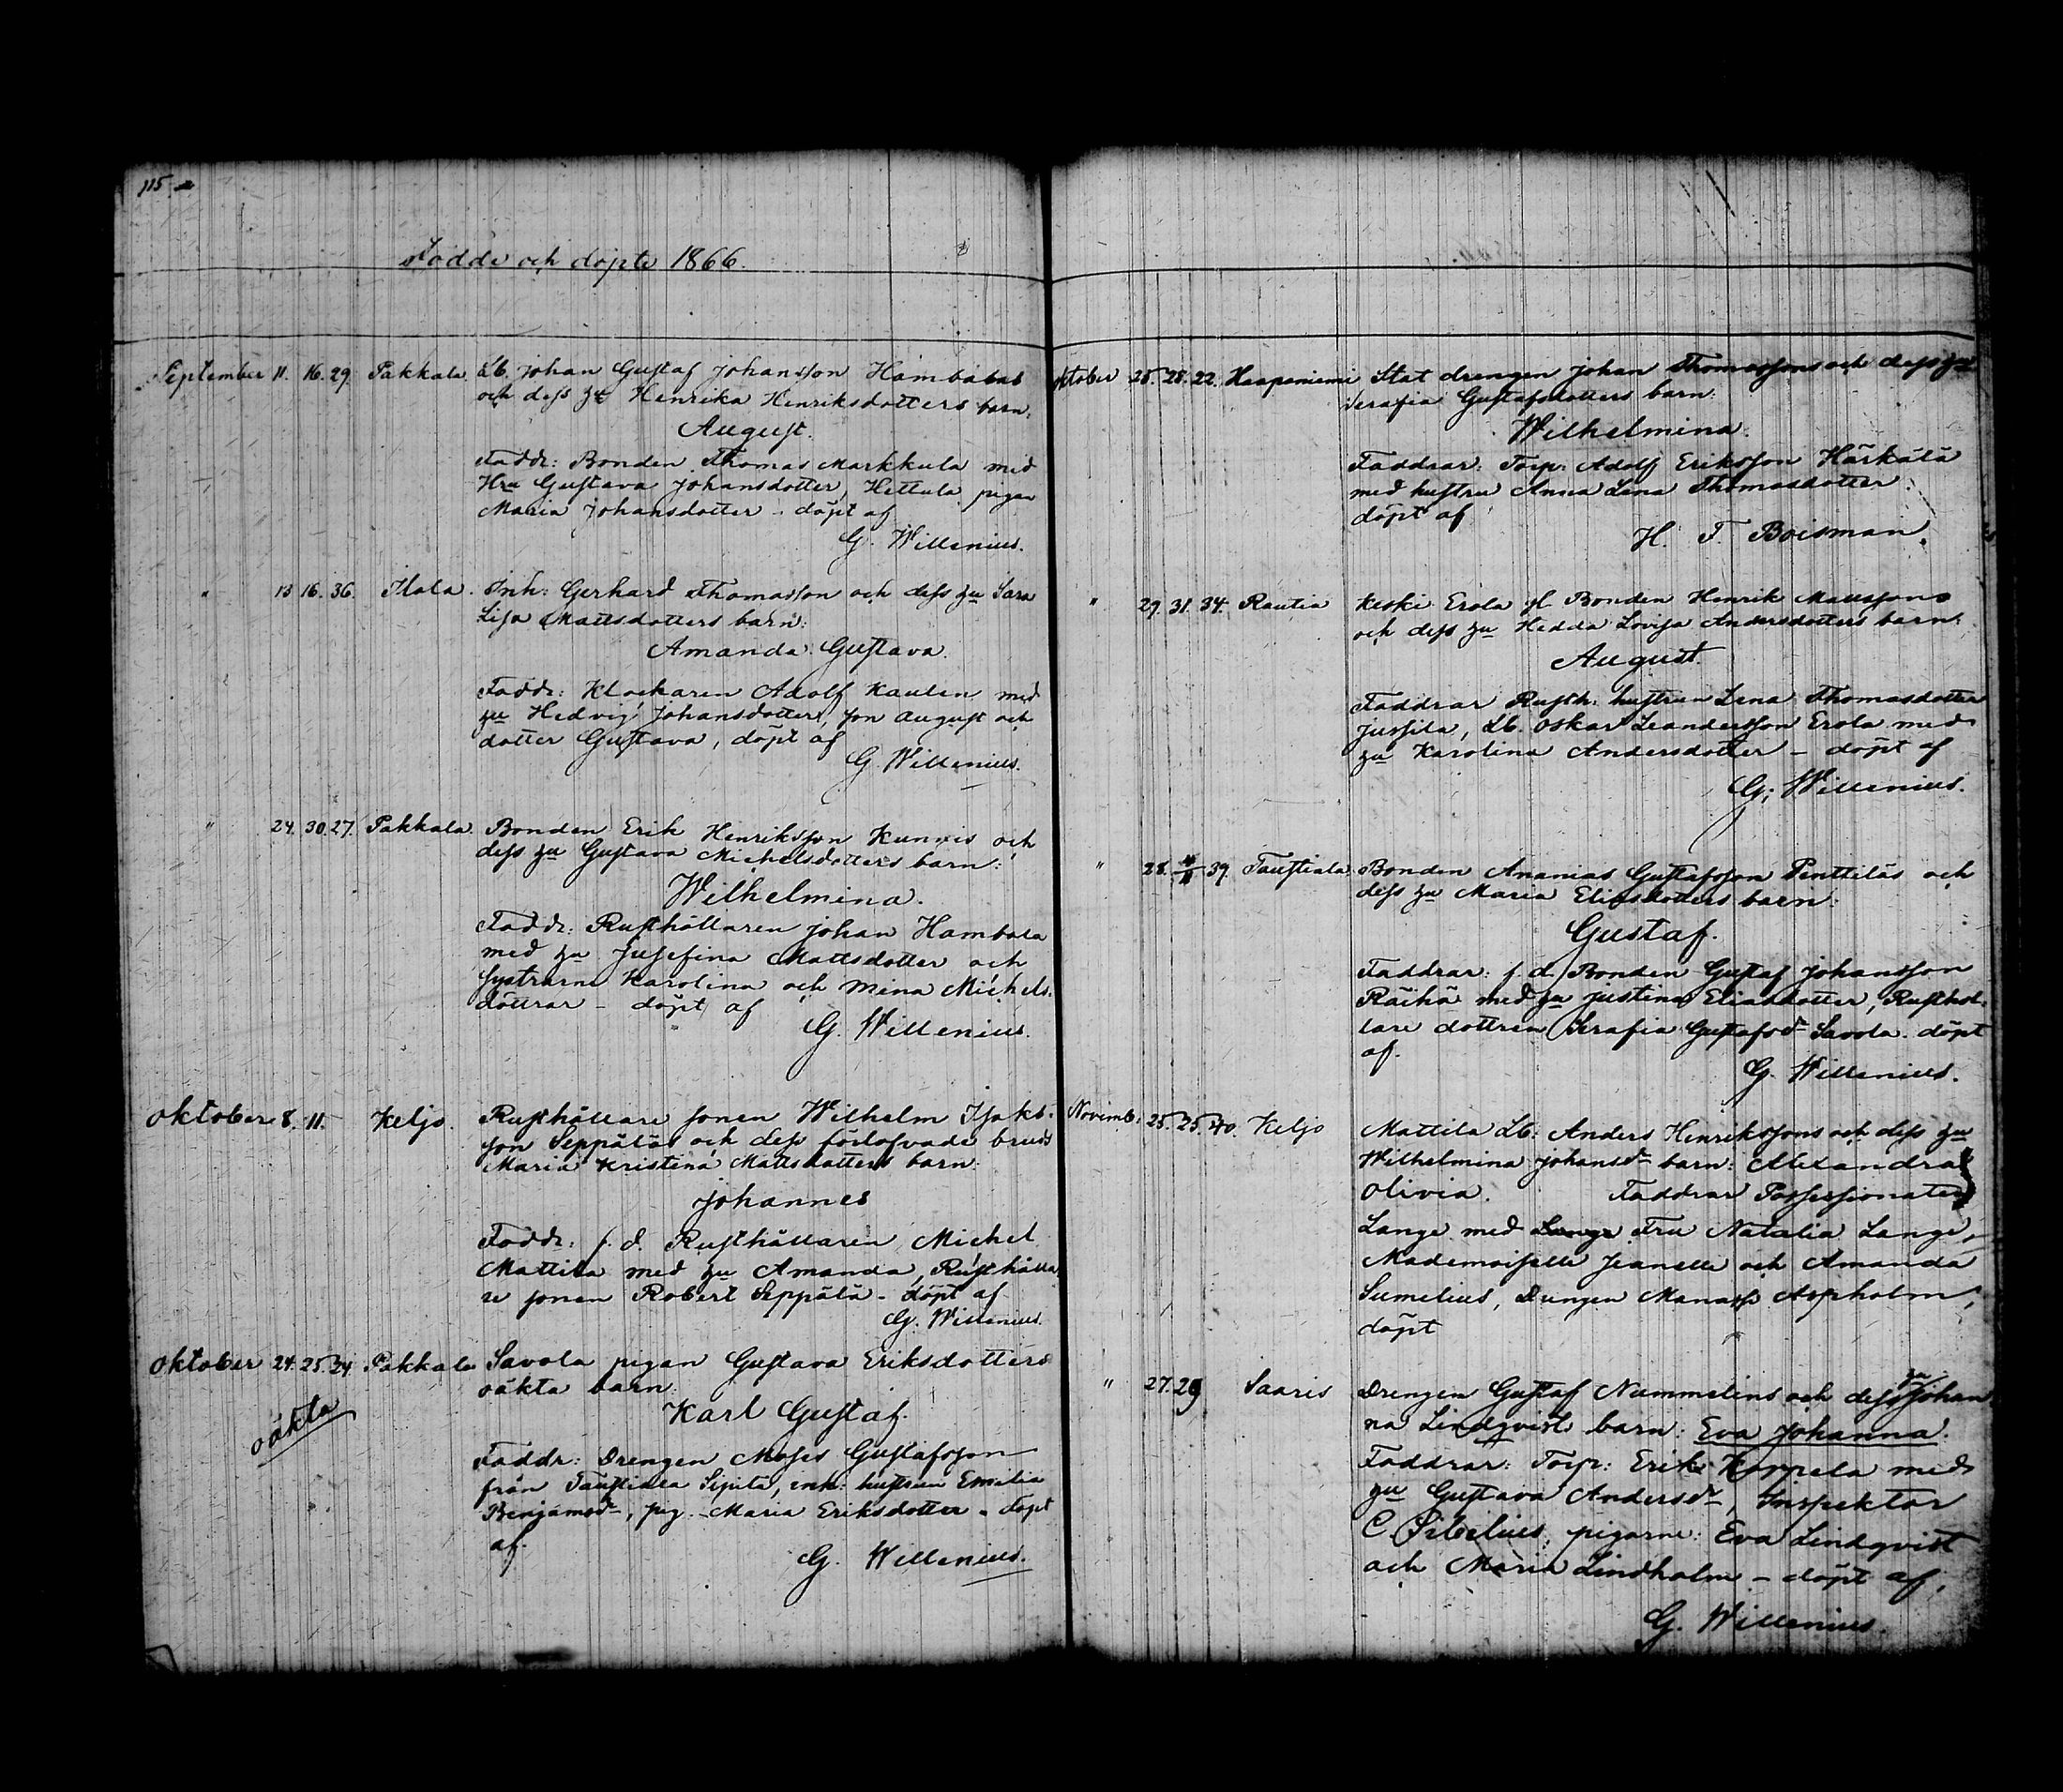 115.
Födde och döpte 1866.
September 11. 16. 29. Pakkala. Lb. Johan Gustaf Johansson Hambalas
och dess hu Henrika Henriksdotters barn:
August.
Faddr: Bonden Thomas Markkula med
Hru Gustava Johansdotter, Hettula pigan
Maria Johansdotter - döpt af
G. Willenius.
" 13 16. 36. Ilola. Inh: Gerhard Thomasson och dess hu Sara
Lisa Mattsdotters barn:
Amanda Gustava.
Faddr: Klockaren Adolf Kaulen med
hu Hedvig Johansdotter, son August och
dotter Gustava, döpt af
G. Willenius.
" 24. 30. 27. Pakkala. Bonden Erik Henriksson Kunnis och
dess hu Gustava Michelsdotters barn:
Wilhelmina.
Faddr: Rusthållaren Johan Hambala
med hu Josefina Mattsdotter och
systrarna Karolina och Mina Michels-
döttrar - döpt af
G. Willenius.
Oktober 8. 11. Keljo. Rusthållare sonen Wilhelm Isaks-
son Seppäläs och dess förlofvade bruds
Maria Kristina Mattsdotters barn:
Johannes
Faddr: f. d. Rusthållaren Michel
Mattila med hu Amanda, Rusthålla-
re sonen Robert Seppälä - döpt af
G. Willenius.
Oktober 24. 25. 34. Pakkala Savola pigan Gustava Eriksdotters
oäkta barn:
oäkta
Karl Gustaf.
Faddr: Drengen Moses Gustafsson
från Taustiala Sipilä, inh: hustrun Emilia
Benjamsdr, pig. Maria Eriksdotter - döpt
af.
G. Willenius.
Oktober 25. 28. 22. Haapaniemi Stat drengen Johan Thomassons och dess hu
Serafia Gustafsdotters barn:
Wilhelmina.
Faddrar: Torp: Adolf Eriksson Härkälä
med hustru Anna Lena Thomasdotter
döpt af
H. F. Boisman.
" 29. 31. 34. Rautia Keski Erola Bonden Henrik Mattssons
och dess hu Hedda Lovisa Andersdotters barn:
August.
Faddrar Rusth: hustrun Lena Thomasdotter
Jussila, Lb. Oskar Leandersson Erola med
hu Karolina Andersdotter - döpt af
G. Willenius.
" 28. 4/11 39. Taustiala Bonden Ananias Gustafsson Penttiläs och
dess hu Maria Eliasdotters barn:
Gustaf.
Faddrar: f. d. Bonden Gustaf Johansson
Räihä med hu Justina Eliasdotter, Rusthål-
lare dottren Serafia Gustafsdr Savola. döpt
af.
G. Willenius.
Novemb: 25. 25. 40. Keljo Mattila Lb: Anders Henrikssons och dess hu
Wilhelmina Johansdr barn: Alexandra
Olivia. Faddrar Possessionaten
Lange med Lange Fru Natalia Lange,
Mademoiselle Jeanette och Amanda
Sumelius, Drengen Manasse Aspholm,
döpt
" 27. 29 Saaris Drengen Gustaf Nummelins och dess hu Johan
na Lindqvists barn: Eva Johanna.
Faddrar: Torp: Erik Korpela med
hu Gustava Andersdr, Inspektor
C. Sibelius, pigorne: Eva Lindqvist
och Maria Lindholm - döpt af,
G. Willenius.